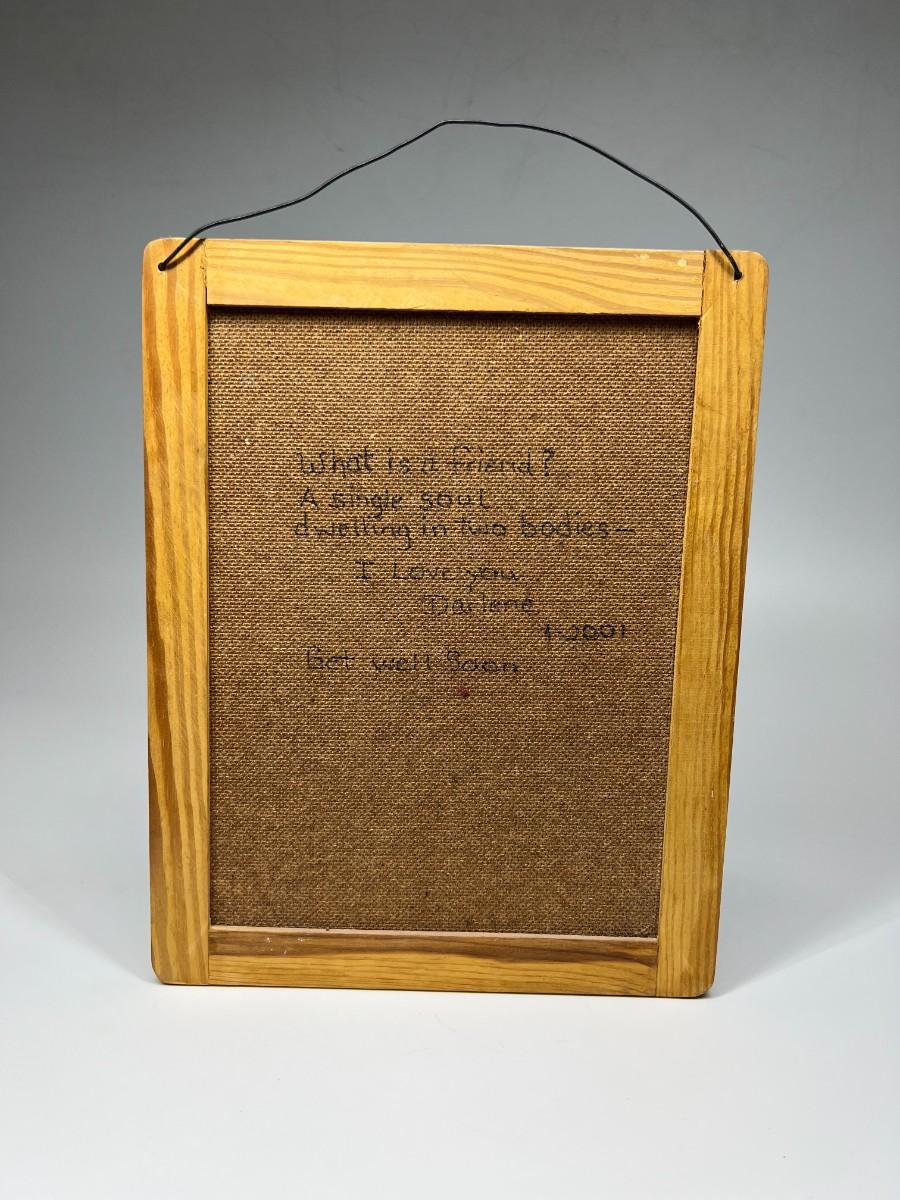 What is a friend?
A single soul
dwelling in two bodies—
I Love you
Darlene
1-2001
Get well Soon